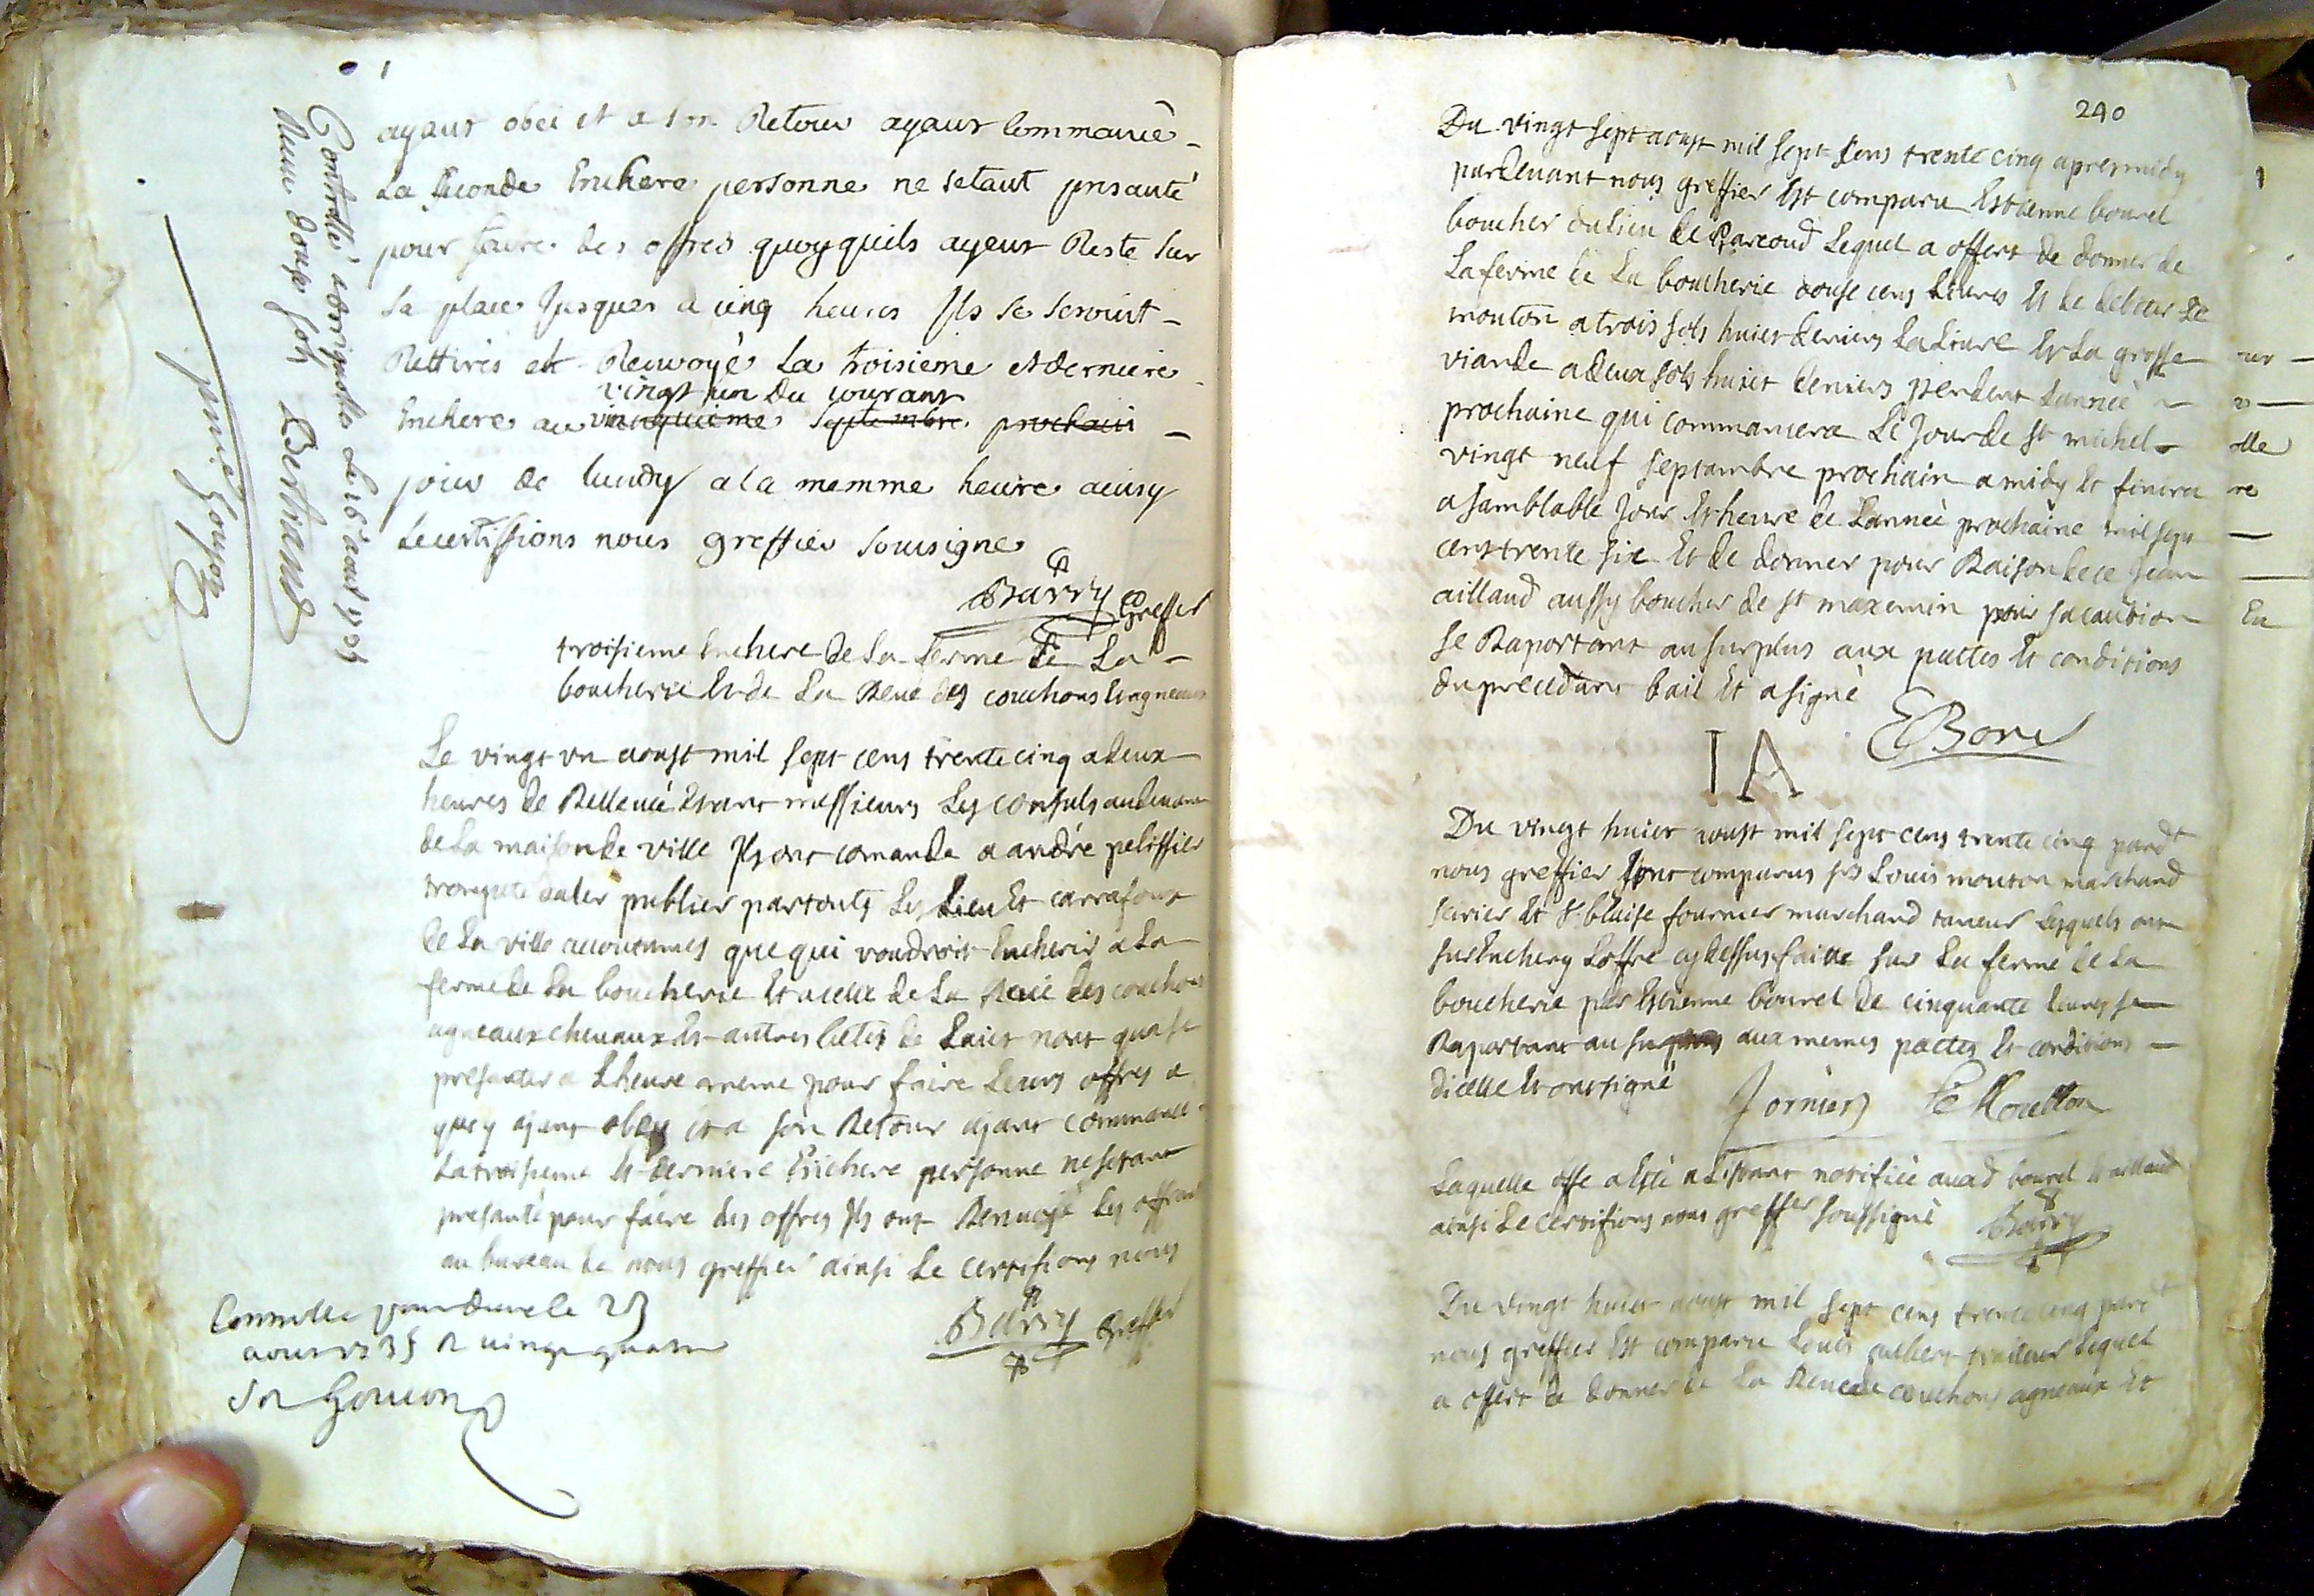 ayant obei et a son Retour ayant Commancé
La seconde Enchere personne ne setant presanté
pour faire des offres quoyquils ayent Resté sur
La place Jusques a cinq heures Ils se seroint
Rettirés et Renvoyé La troisieme et derniere
vingt un du courant
Enchere au vincquieme septembre prochain
jour de lundy a la memme heure ainsy
Le certiffions nous greffier sousigne
Barry Greffier
troisieme Enchere de La ferme de La
boucherie Et de La Reve des couchons Et agneaux
Le vingt un aoust mil sept cens trente cinq a deux
heures de Rellevée Etant messieurs Les consuls audevant
de La maison de ville Ils ont comandé a andré pelissier
trompete daler publier partouts Les Lieu Et carrafour
de La ville accoutumés que qui voudroit Encherir a La
ferme de La boucherie Et a celle de La Reve des couchons
agneaux chevaux Et autres betes de Lait nont qua se
presanter a Lheure meme pour faire Leurs offres a
quoy ayant obey et a son Retour ayant commancé
La troisieme Et derniere Enchere personne ne setant
presanté pour faire des offres Ils ont Renvoyé Les offres
au bureau de nous greffier ainsi Le certifions nous
Barry Greffier
Controllé le 23
aoust 1735 R vingt quatre
s. Gouion
Controllé a Brignolle Le 16 aout 1735
Reçu douze sols Bertrand
Gouion
240
Du vingt sept aoust mil sept cens trente cinq apres midy
pardevant nous greffier Est comparu Estienne bourel
boucher du Lieu de Lequel a offert de donner de
La ferme de La boucherie douse cens Livres Et de debiter Le
mouton a trois sols huict deniers La Livre Et La grosse
viande a deux sols huict deniers pendent Lannée
prochaine qui commancera Le Jour de st michel
vingt neuf septambre prochain a midy Et finira
a samblable Jour Et heure de Lannée prochaine mil sept
cens trente six Et de donner pour Raison de ce Jean
aillaud aussy boucher de st maxemin pour sa caution
se Raportant au surplus aux pactes Et conditions
du precedant bail Et a signé
E Borel
IA
Du vingt huict aoust mil sept cens trente cinq pardt
nous greffier sont comparus srs Louis mouton marchand
cirier Et sr blaise fournier marchand taneur Lesquels ont
surEnchery Loffre cy dessus faitte sur La ferme de La
boucherie par Estienne bourel de cinquante Livres se
Raportant au surplus aux mêmes pactes Et conditions
dicelle Et ont signé
fornier Le Moutton
Laquelle offre a Esté a Listant notifiée auxd bourel Et aillaud
ainsi Le certifions nous greffier soussigné Barry
Du vingt huict aoust mil sept cens trente cinq pardt
nous greffier Est comparu Louis traiteur Lequel
a offert de donner de La Reve de couchons agneaux Et